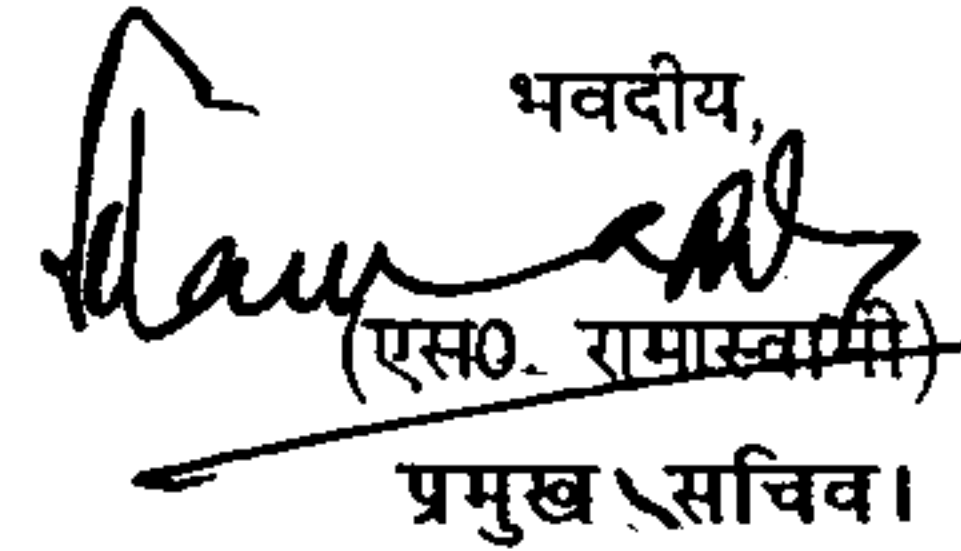 भवदीय,
(एस0. रामास्वामी)
प्रमुख सचिव।